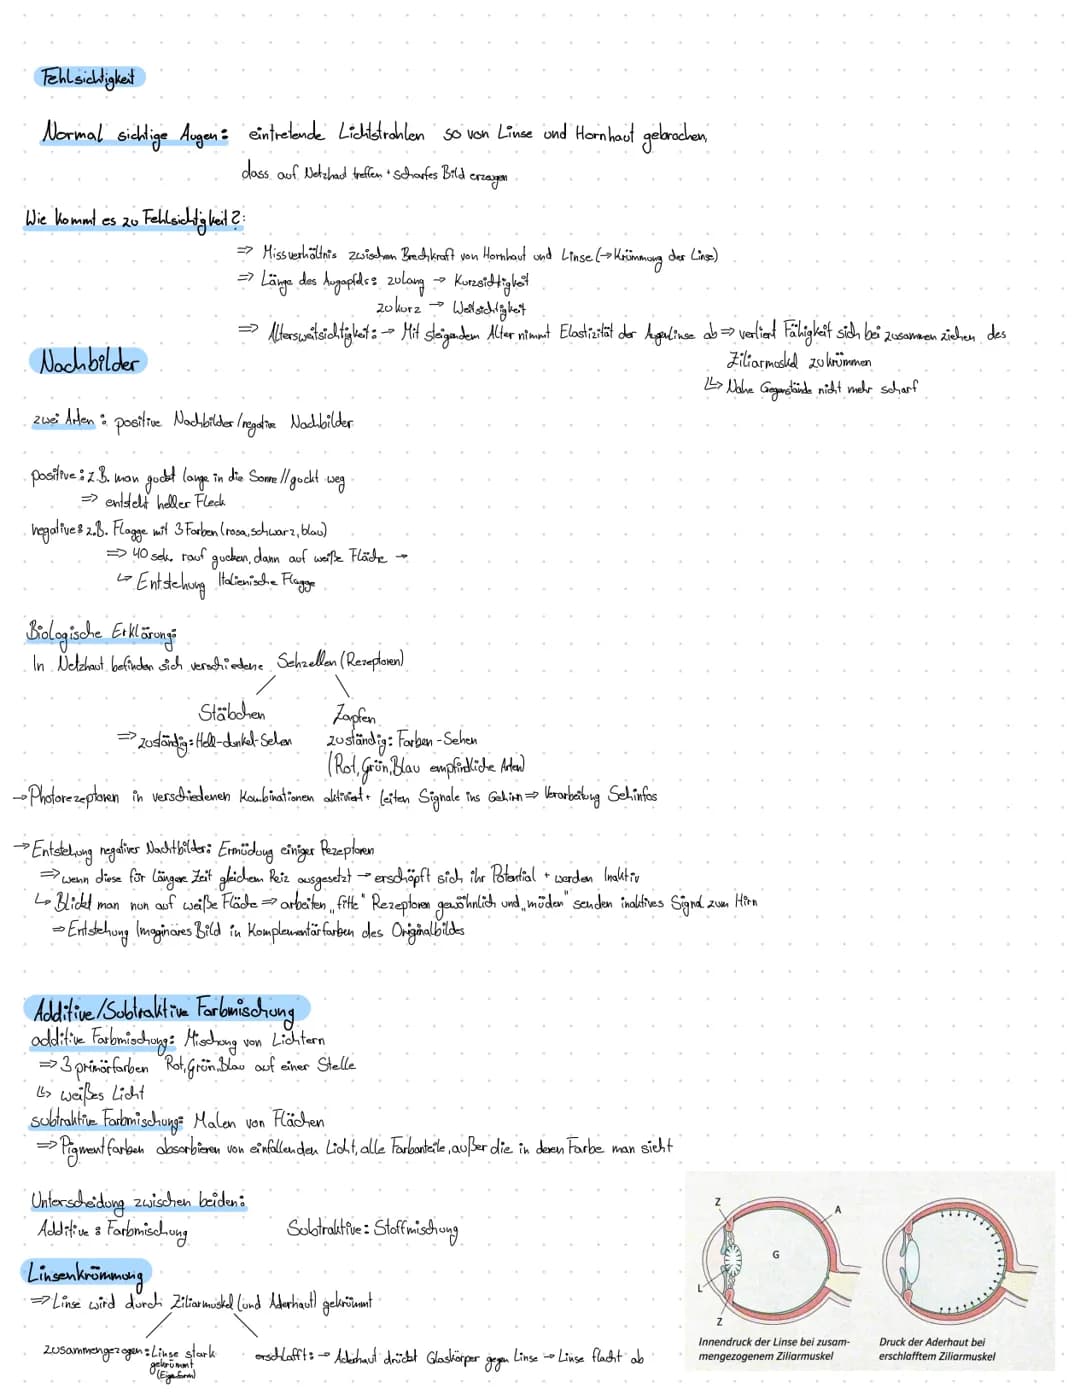 Fehlsichtigkeit
Normal sichtige Augen: eintretende Lichtstrahlen so von Linse und Hornhaut gebrochen,
dass auf Netzhaut treffen + scharfes Bild erzeugen
Wie kommt es zu Fehlsichtigkeit?:
=> Missverhältnis zwischen Brechkraft von Hornhaut und Linse (→ Krümmung der Linse)
=> Länge des Augapfels: zulang → Kurzsichtigkeit
zu kurz → Weitsichtigkeit
=> Altersweitsichtigkeit: → Mit steigendem Alter nimmt Elastizität der Augenlinse ab => verliert Fähigkeit sich bei zusammen ziehen des
Ziliarmuskel zu krümmen
↳> Nahe Gegenstände nicht mehr scharf
Nachbilder
zwei Arten: positive Nachbilder/negative Nachbilder
positive: z.B. man guckt lange in die Sonne // guckt weg
=> entsteht heller Fleck
negative: z.B. Flagge mit 3 Farben (rosa, schwarz, blau)
=> 40 sek. rauf gucken, dann auf weiße Fläche →
↳ Entstehung Italienische Flagge
Biologische Erklärung:
In Netzhaut befinden sich verschiedene Sehzellen (Rezeptoren)
Stäbchen Zapfen
=> zuständig: Hell-dunkel-Sehen zuständig: Farben-Sehen
(Rot, Grün, Blau empfindliche Arten)
→ Photorezeptoren in verschiedenen Kombinationen aktiviert + leiten Signale ins Gehirn => Verarbeitung Sehinfos
→ Entstehung negativer Nachtbilder: Ermüdung einiger Rezeptoren
=> wenn diese für Längere Zeit gleichem Reiz ausgesetzt → erschöpft sich ihr Potential + werden Inaktiv
↳ Blickt man nun auf weiße Fläche => arbeiten „fitte" Rezeptoren gewöhnlich und „müden" senden inaktives Signal zum Hirn
=> Entstehung Imaginäres Bild in Komplementärfarben des Originalbildes
Additive/Subtraktive Farbmischung
additive Farbmischung: Mischung von Lichtern
=> 3 primärfarben Rot, Grün, Blau auf einer Stelle
↳> weißes Licht
subtraktive Farbmischung: Malen von Flächen
=> Pigmentfarben absorbieren von einfallenden Licht, alle Farbanteile, außer die in deren Farbe man sieht
Unterscheidung zwischen beiden:
Additive: Farbmischung Subtraktive: Stoffmischung
Linsenkrümmung
=> Linse wird durch Ziliarmuskel (und Aderhaut) gekrümmt
zusammengezogen: Linse stark
gekrümmt
(Eigenform)
erschlafft: → Aderhaut drückt Glaskörper gegen Linse → Linse flacht ab
Z
A
G
L
Z
Innendruck der Linse bei zusam-
mengezogenem Ziliarmuskel
Druck der Aderhaut bei
erschlafftem Ziliarmuskel